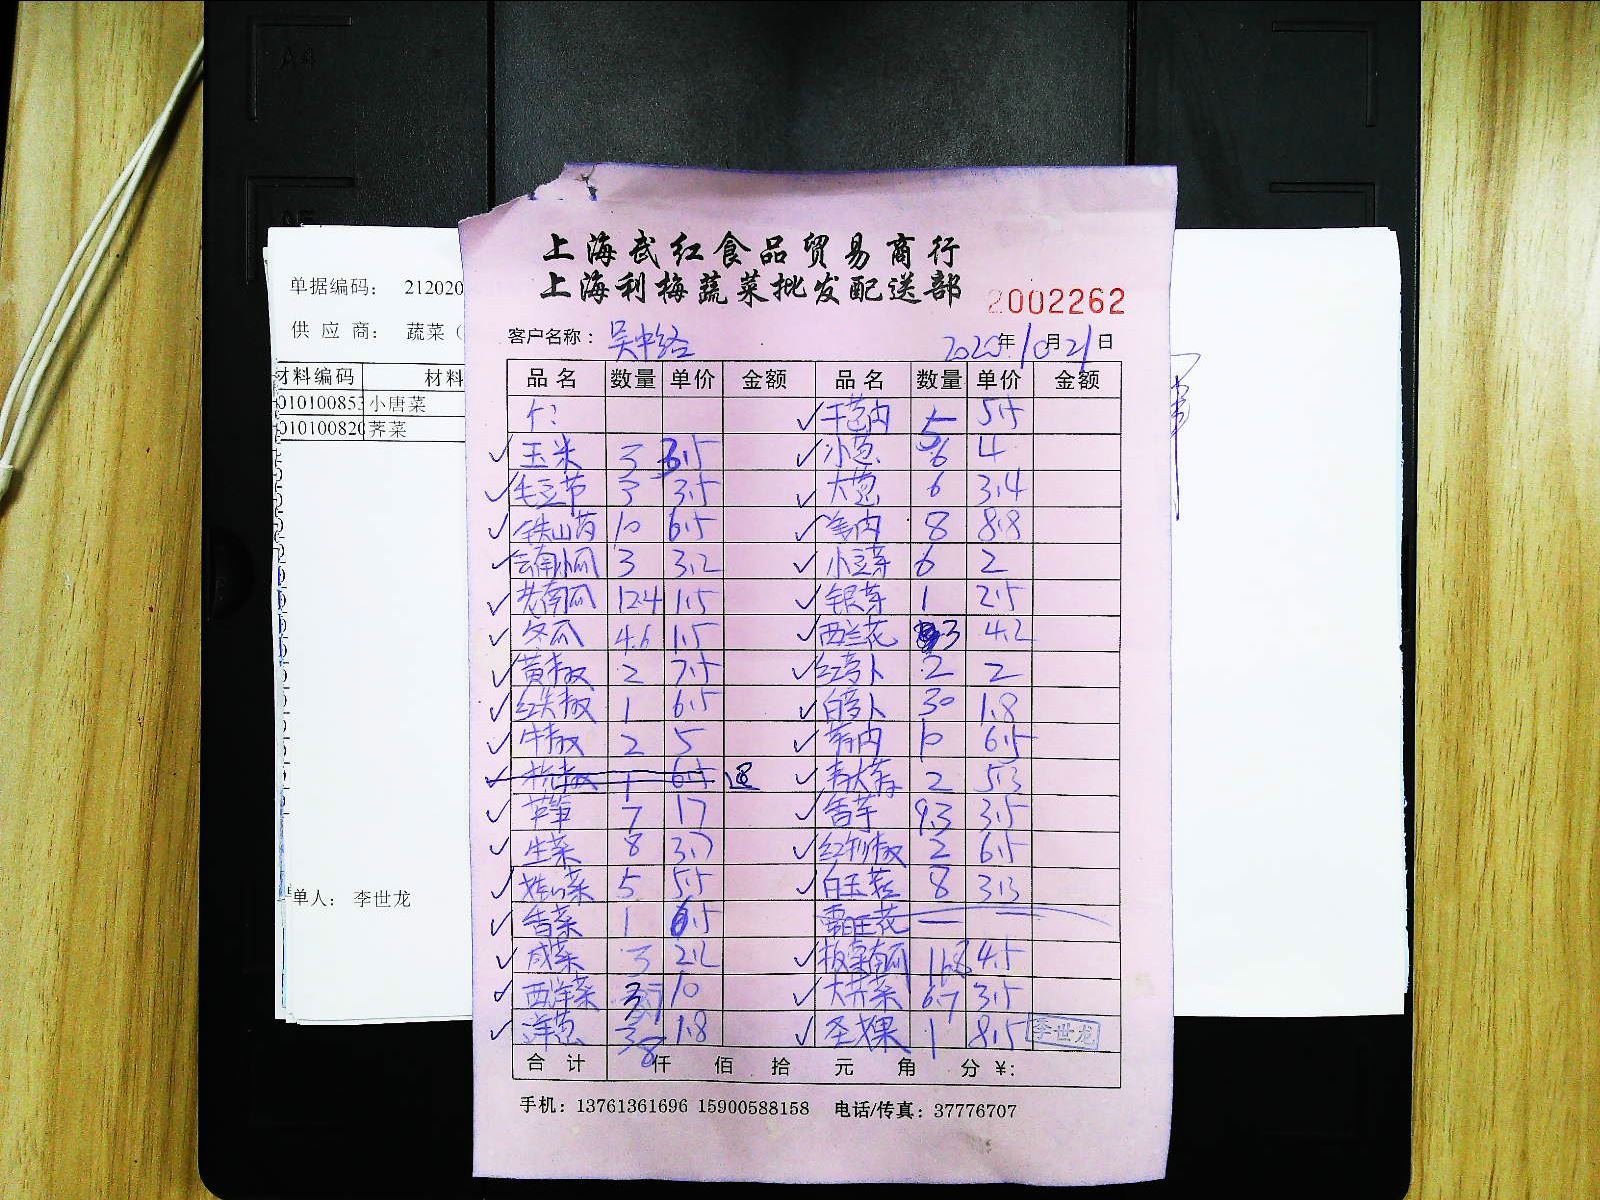 上海武红食品贸易商行
上海利梅蔬菜批发配送部
2002262
客户名称：吴中路 2020年10月21日
品名 数量 单价 金额 品名 数量 单价 金额
5 5.5
玉米 3 3.5 小葱 6 4
毛豆节 3 3.5 大葱 6 3.4
铁山药 10 6.5 姜肉 8 8.8
云南小瓜 3 3.2 小豆芽 6 2
老南瓜 12.4 1.5 银芽 1 2.5
冬瓜 4.6 1.5 西兰花 3 4.2
黄椒 2 7.5 红萝卜 2 2
红尖椒 1 6.5 白萝卜 30 1.8
牛椒 2 5 10 6.5
杭椒 1 6.5 退 青大蒜 2 5.3
7 17 香芋 9.3 3.5
生菜 8 3.7 红利椒 2 6.5
5 5.5 白玉菇 8 3.3
香菜 1 6.5 霸王花
咸菜 3 2.2 板栗南瓜 11.8 4.5
西洋菜 3 10 大芥菜 6.7 3.5
洋葱 3.8 1.8 圣果 1 8.5 李世龙
合计 仟 佰 拾 元 角 分 ¥:
手机：13761361696 15900588158 电话/传真：37776707
单据编码： 212020
供应商： 蔬菜（
材料编码 材料
010100853 小唐菜
010100820 荠菜
单人： 李世龙